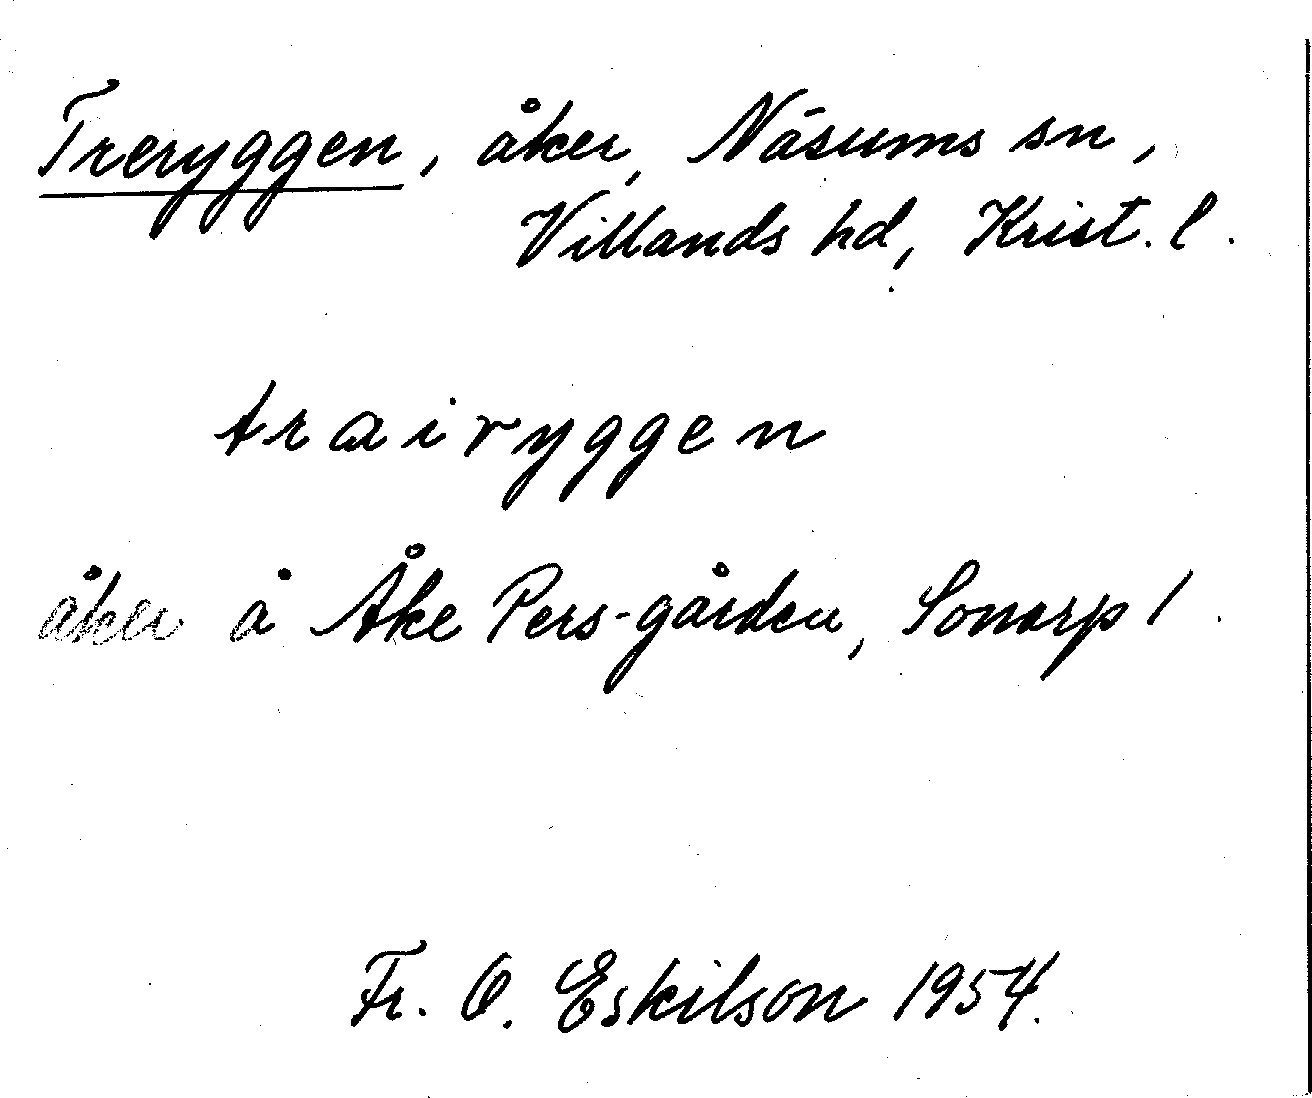 Treryggen, åker, Näsums sn,
Villands hd, Krist. l.
trairyggen
åker å Åke Pers-gården, Sonarp 1
Fr. O. Eskilson 1954.